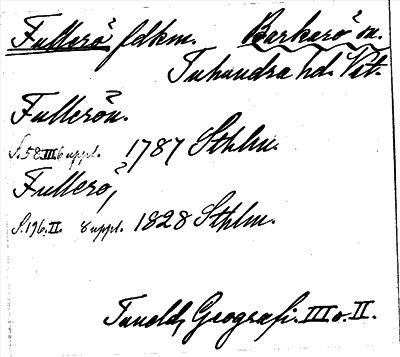 Fullerö fdkm. Barkarö sn.
Tuhundra hd. Vstm.
Fullerön.
S. 58 III 6 uppl. 1787 Sthlm.
Fullerö,
S. 196. II. 8 uppl. 1828 Sthlm.
Tuneld, Geografi. III o. II.